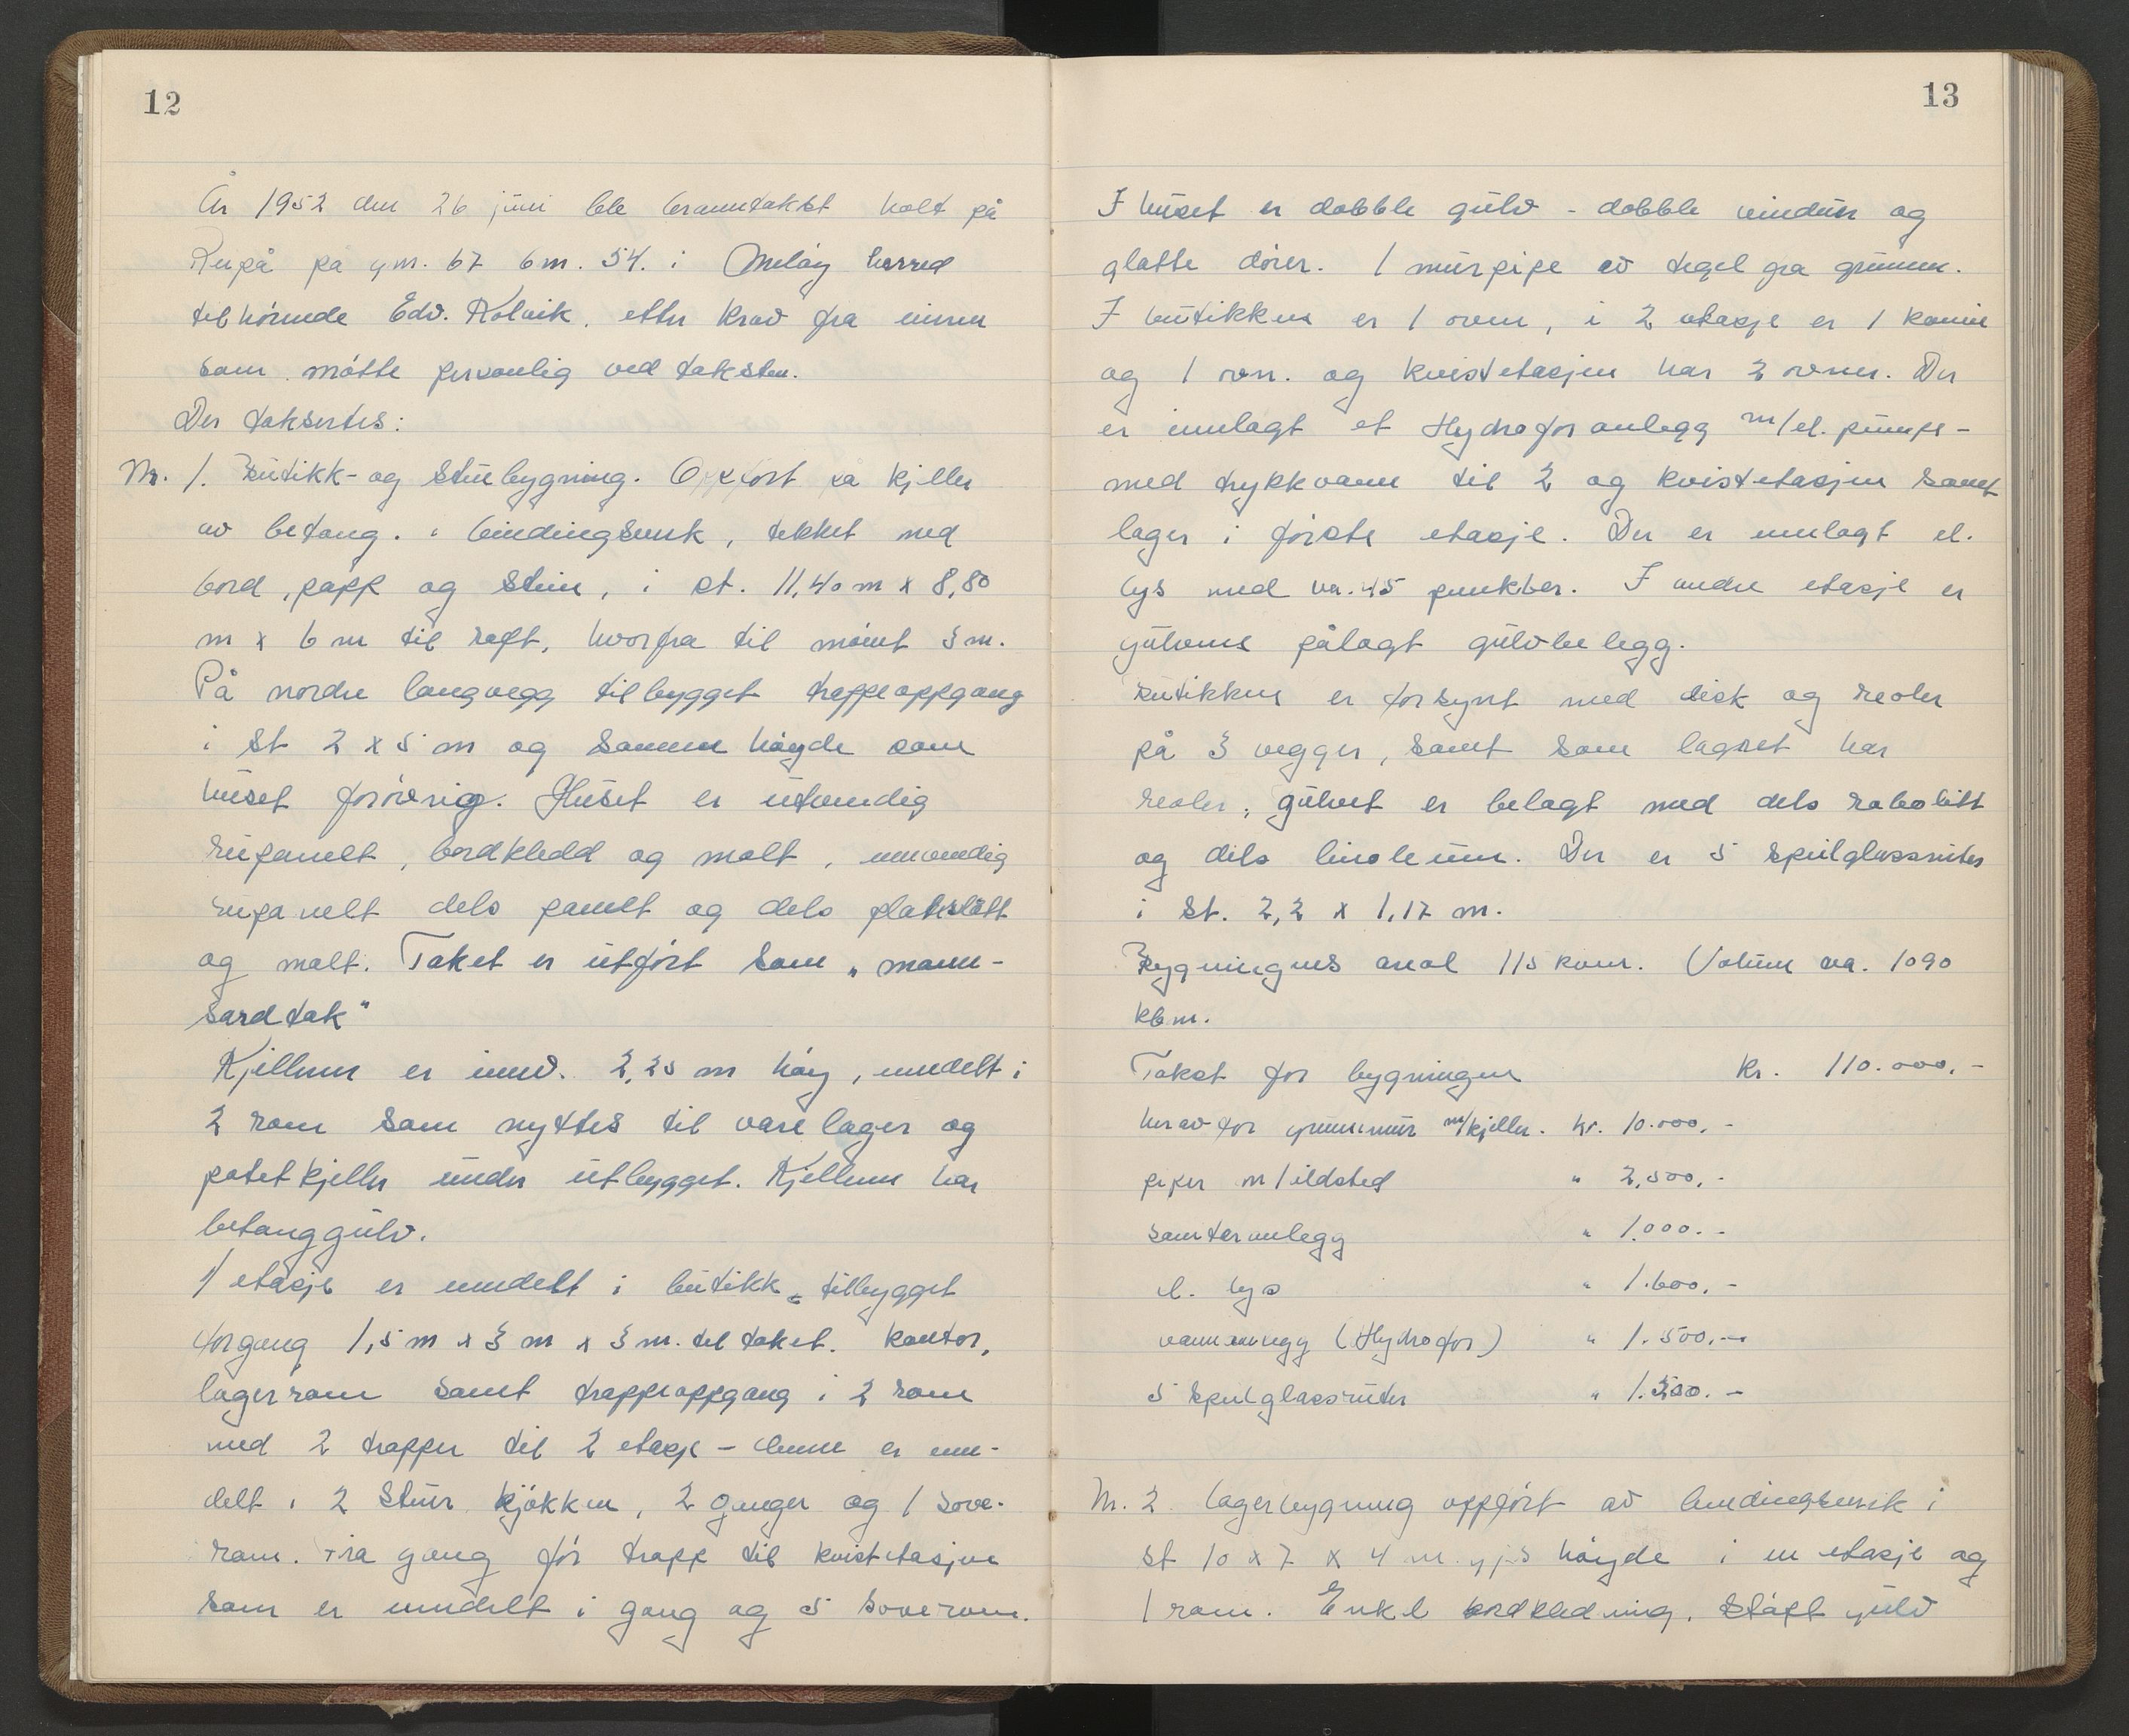 12
År 1952 den 26 juni ble branntakst holt på
Reipå på gnr. 67 bnr. 54. i Meløy herred
tilhørende Edv. Kolvik, etter krav fra eieren
som møtte personlig ved taksten.
Der taksertes:
Nr. 1. Butikk- og stuebygning. Oppført på kjeller
av betong. i bindingsverk, tekket med
bord, papp og stein, i st. 11,40 m x 8,80
m x 6 m til raft, hvorfra til mønet 3 m.
På nordre langvegg tilbygget trappeoppgang
i st 2 x 5 m og samme høyde som
huset forøvrig. Huset er utvendig
rupanelt, bordkledd og malt, innvendig
rupanelt dels panelt og dels plateslått
og malt. Taket er utført som „mann-
sardtak"
Kjelleren er innv. 2,25 m høy, inndelt i
2 rom som nyttes til varelager og
potetkjeller under utbygget. Kjelleren har
betonggulv.
1 etasje er inndelt i butikk, tilbygget
forgang 1,5 m x 3 m x 3 m. til taket. kontor,
lagerrom samt trappeoppgang i 2 rom
med 2 trapper til 2 etasje – denne er inn-
delt i 2 stuer kjøkken, 2 ganger og 1 sove-
rom. Fra gang før trapp til kvistetasjen
som er inndelt i gang og 5 soverom.
13
I huset er dobble gulv - dobble vinduer og
glatte dører. 1 murpipe av tegel fra grunnen.
I butikken er 1 ovn, i 2 etasje er 1 kamin
og 1 ovn. og kvistetasjen har 2 ovner. Der
er innlagt et Hydroforanlegg m/el. pumpe-
med trykkvann til 2 og kvistetasjen samt
lager i første etasje. Der er innlagt el.
lys med ca. 45 punkter. I andre etasje er
gulvene pålagt gulvbelegg.
Butikken er forsynt med disk og reoler
på 3 vegger, samt som lagret har
reoler, gulvet er belagt med dels
og dels linoleum. Der er 5 speilglassruter
i st. 2,2 x 1,17 m.
Bygningens areal 115 kvm. Volum ca. 1090
kbm.
Takst for bygningen kr. 110.000,-
herav for grunnmur m/kjeller. kr. 10.000,-
piper m/ildsted " 2,500,-
sanitæranlegg " 1.000.-
el. lys " 1.600,-
vannanlegg (Hydrofor) " 1.500,-
5 speilglassruter "
Nr. 2. Lagerbygning oppført av bindingsverk i
st 10 x 7 x 4 m. gj.s høyde i en etasje og
1 rom. Enkel bordkledning, støpt gulv